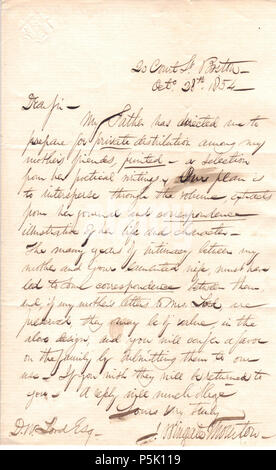 20 Court St. Boston
Octo. 28th. 1854
Dear Sir - My Father has directed me to
prepare for private distribution among my
mother's friends, printed - a selection
from her poetical writings. Our plan is
to intersperse through the volume extracts
from her journal and correspondence
illustrative of her life and character.
The many years of intimacy between my
mother and your lamented wife must have
led to some correspondence between them
and, if my mother's letters to Mrs. Lord are
preserved, they may be of value in the
above design, and you will confer a favor
on the family by submitting them to our
use - If you wish they will be returned to
you. A reply will much oblige
Yours Very truly,
J. Wingate Thornton
D. W. Lord Esq -
alamy
P5K119